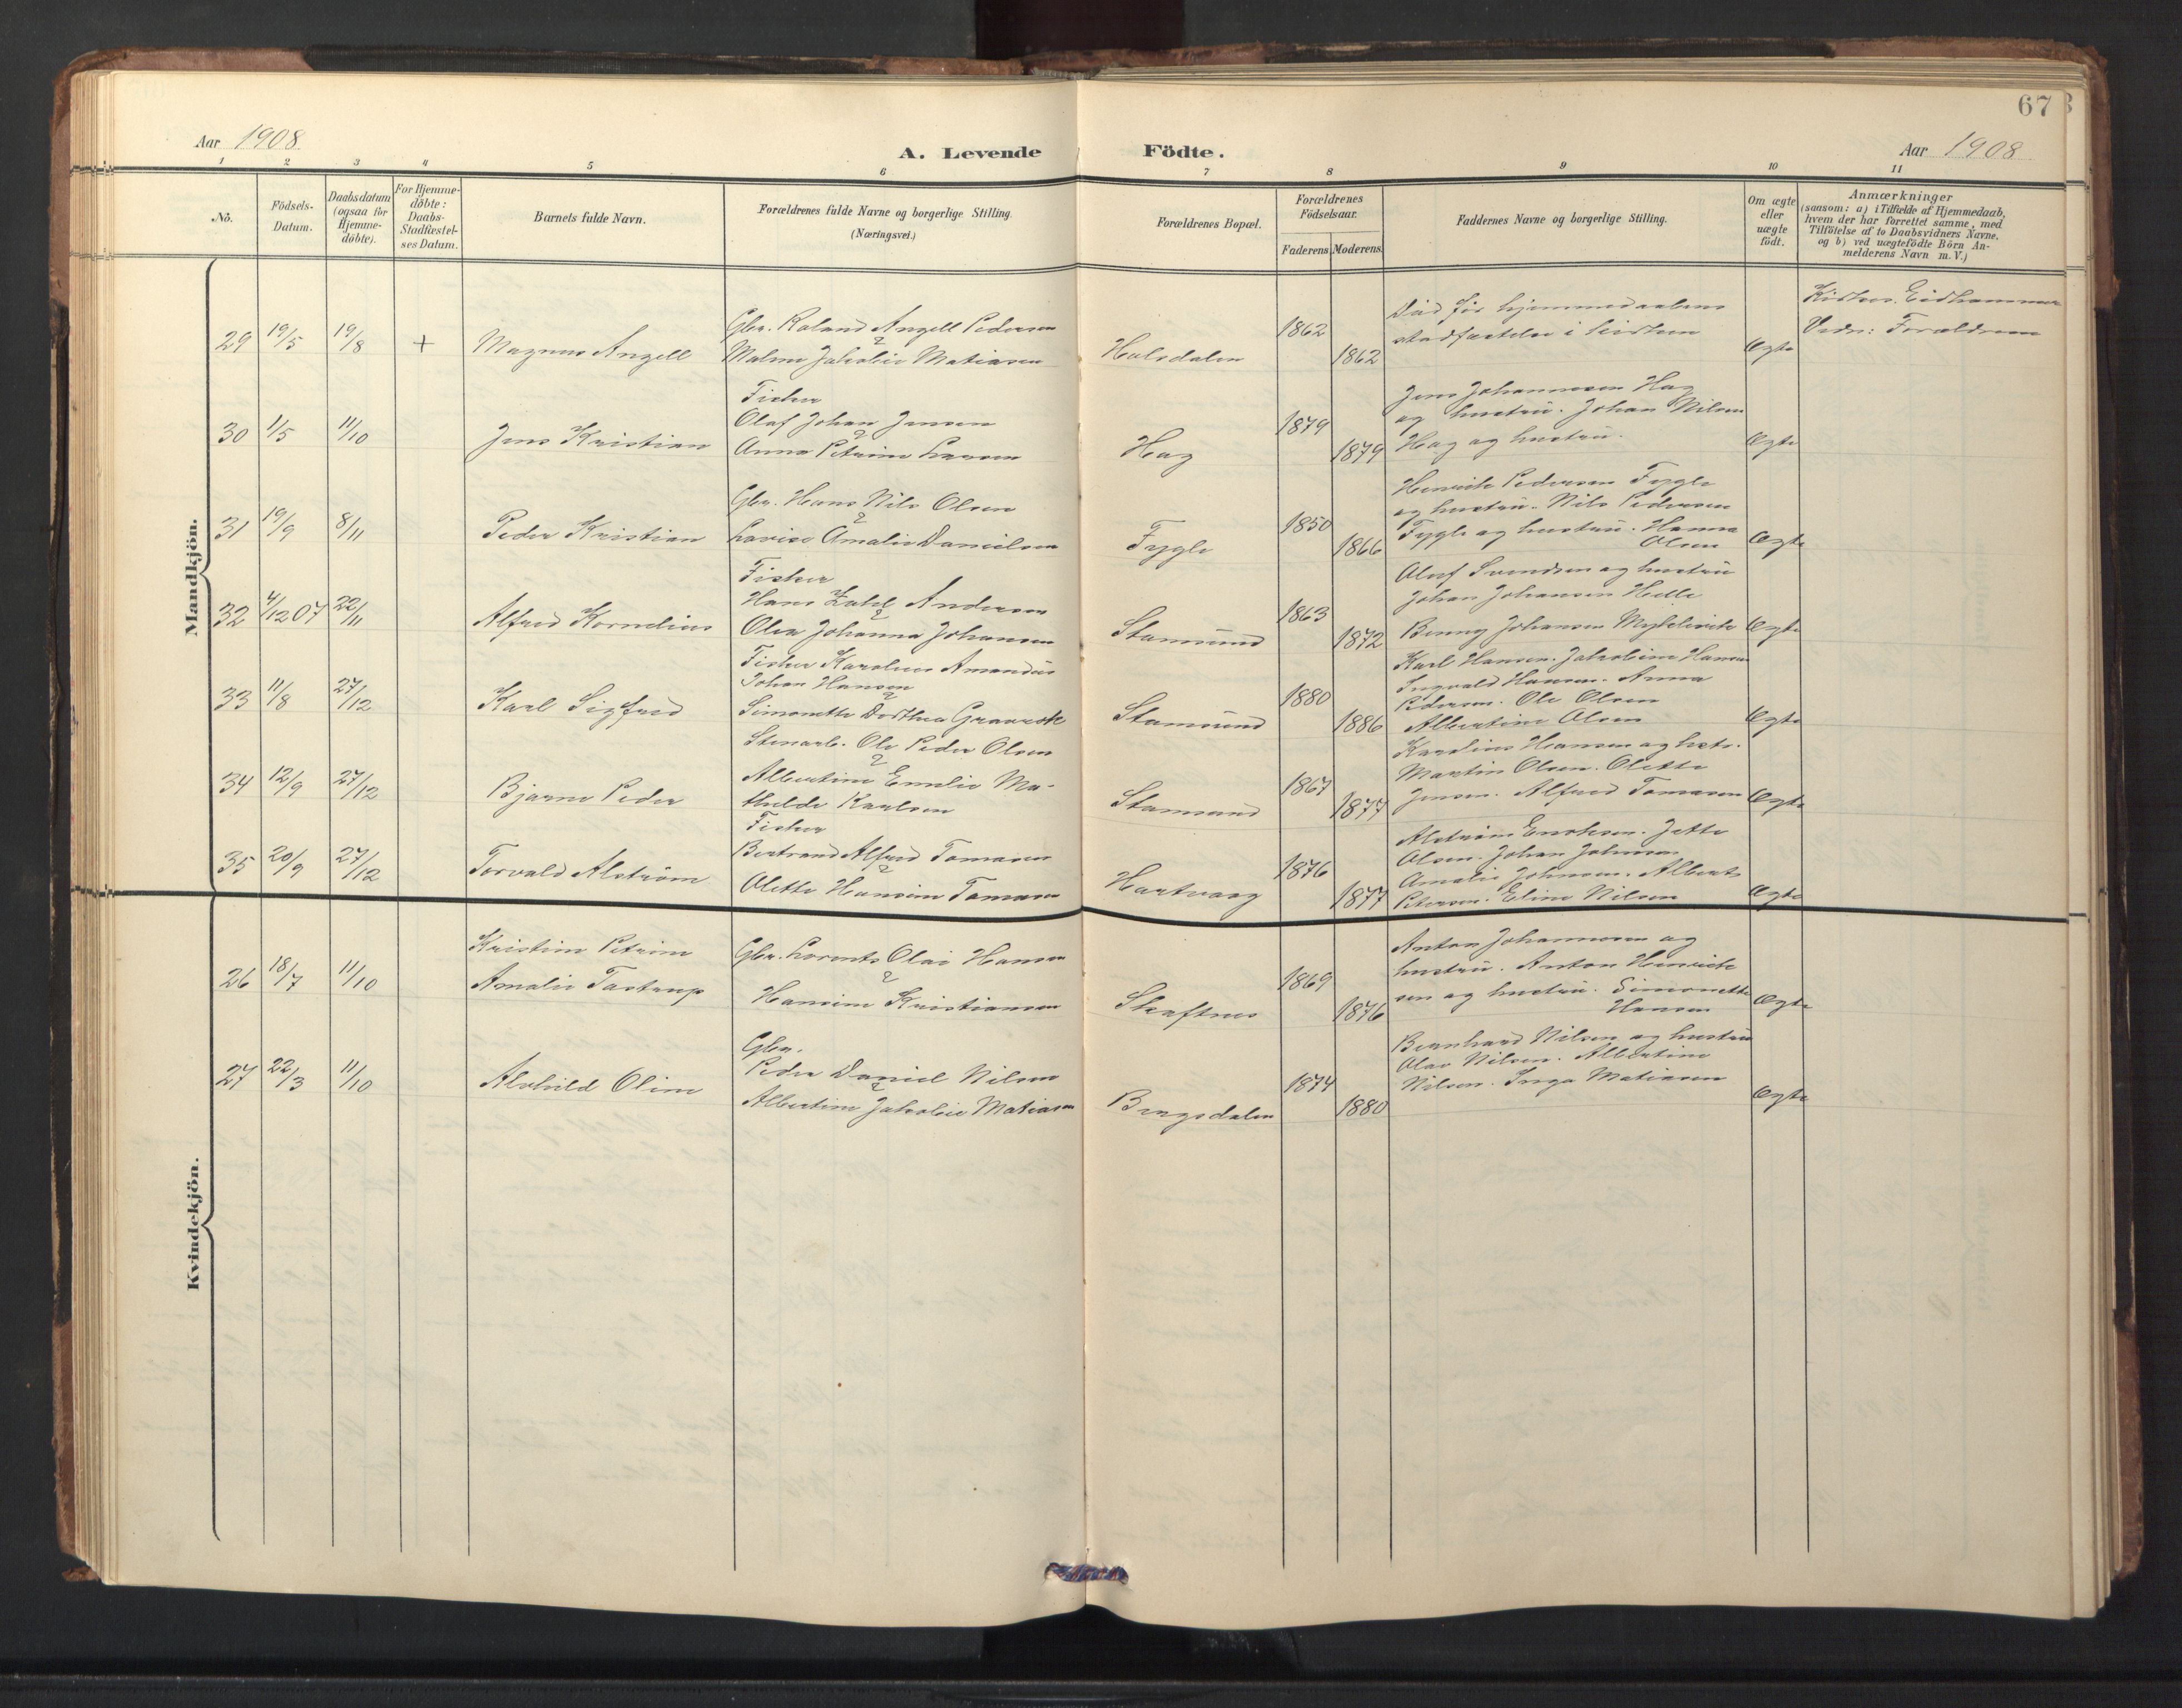 67
Aar 1908
A. Levende Födte.
Aar 1908
1 2 3 4 5 6 7 8 9 10 11
No.
Födsels-Datum.
Daabsdatum (ogsaa for Hjemme-döbte).
For Hjemme-döbte: Daabs-Stadfæstel-ses Datum.
Barnets fulde Navn.
Forældrenes fulde Navne og borgerlige Stilling.
(Næringsvei.)
Forældrenes Bopæl.
Forældrenes Födselsaar.
Faderens Moderens
Faddernes Navne og borgerlige Stilling.
Om ægte eller uægte födt.
Anmærkninger
(sansom: a) i Tilfælde af Hjemmedaab,
hvem der har forrettet samme, med
Tilföielse af to Daabsvidners Navne,
og b) ved uægtefödte Börn An-
melderens Navn m.V.)
Mandkjön.
29 19/5 19/8 + Magnus Angell
Gbr. Roland Angell Pedersen
&
Malene Jakobie Matiasen
Holsdalen 1862 1862
Död för hjemmedaabens
stadfæstelse i kirken
Ægte
Kirkes. Eidhammer
Vidn: Forældrene
30 1/5 11/10 Jens Kristian
Fisker
Olaf Johan Jensen
&
Anna Petrine Larsen
Hag 1879 1879
Jens Johannesen Hag
og hustru. Johan Nilsen
Hag og hustru.
Ægte
31 19/9 8/11 Peder Kristian
Gbr. Hans Nils Olsen
&
Lovise Amalie Danielsen
Fygle 1850 1866
Henrik Pedersen Fygle
og hustru. Nils Pedersen
Fygle og hustru. Hanna
Olsen
Ægte
32 4/12 07 22/11 Alfred Kornelius
Fisker
Hans Zahl Andersen
&
Olea Johanna Johansen
Stamsund 1863 1872
Oluf Svendsen og hustru
Johan Johansen Helle
Benny Johansen
Ægte
33 11/8 27/12 Karl Sigfred
Fisker Karolius Amandus
Johan Hansen
&
Simonette Dorthea
Stamsund 1880 1886
Karl Hansen. Jakobine Hansen
Ingvald Hansen. Anna
Pedersen. Ole Olsen
Albertine Olsen
Ægte
34 12/9 27/12 Bjarne Peder
Stenarb. Ole Peder Olsen
&
Albertine Emelie Ma-
thilde Karlsen
Stamsund 1867 1877
Karolius Hansen og hstr.
Martin Olsen. Olette
Jensen. Alfred Tomasen
Ægte
35 20/9 27/12 Torvald Alström
Fisker
Bertrand Alfred Tomasen
&
Olette Hansine Tomasen
Hartvaag 1876 1877
Alström Enoksen. Jette
Olsen. Johan Johnsen
Amalie Johnsen. Albert
Petersen. Eline Nilsen
Ægte
Kvindekjön.
26 18/7 11/10
Kristine Petrine
Amalie Tastrup
Gbr. Lorents Olai Hansen
&
Hansine Kristiansen
Skaftnes 1869 1876
Anton Johannesen og
hustru. Anton Henrik-
sen og hustru. Simonette
Hansen
Ægte
27 22/3 11/10 Alvhild Oline
Gbr.
Peder Daniel Nilsen
&
Albertine Jakobie Matiasen
Bergsdalen 1874 1880
Bernhard Nilsen og hustru
Olav Nilsen. Albertine
Nilsen. Inga Matiasen
Ægte